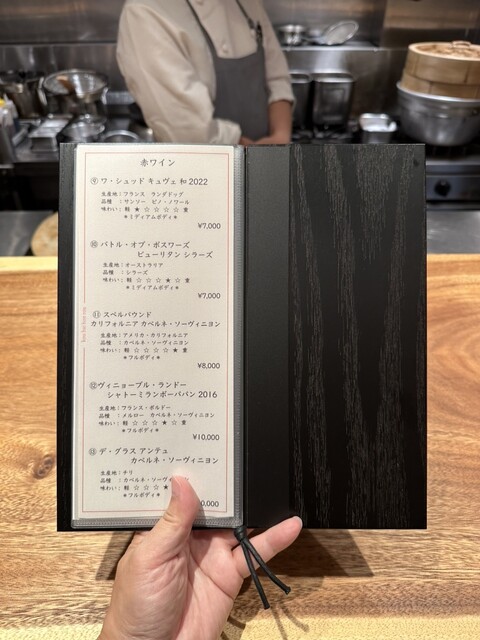 赤ワイン
⑨ ワ・シュッド キュヴェ 和 2022
生産地：フランス ランドッグ
品種 ：サンソー ピノ・ノワール
味わい：軽 ★ ☆ ☆ ☆ ☆ 重
＊ミディアムボディ＊
¥7,000
⑩ バトル・オブ・ボスワーズ
ピューリタン シラーズ
生産地：オーストラリア
品種 ：シラーズ
味わい：軽 ☆ ☆ ☆ ★ ☆ 重
＊ミディアムボディ＊
¥7,000
⑪ スペルバウンド
カリフォルニア カベルネ・ソーヴィニヨン
生産地：アメリカ・カリフォルニア
品種 ：カベルネ・ソーヴィニヨン
味わい：軽 ☆ ☆ ☆ ☆ ★ 重
＊フルボディ＊
¥8,000
⑫ ヴィニョーブル・ランドー
シャトーミランボーパパン 2016
生産地：フランス・ボルドー
品種 ：メルロー カベルネ・ソーヴィニヨン
味わい：軽 ☆ ☆ ☆ ★ ☆ 重
＊フルボディ＊
¥10,000
⑬ デ・グラス アンテュ
カベルネ・ソーヴィニヨン
生産地：チリ
品種 ：カベルネ・ソーヴ
味わい：軽 ☆ ☆ ★
＊フルボディ＊
0,000